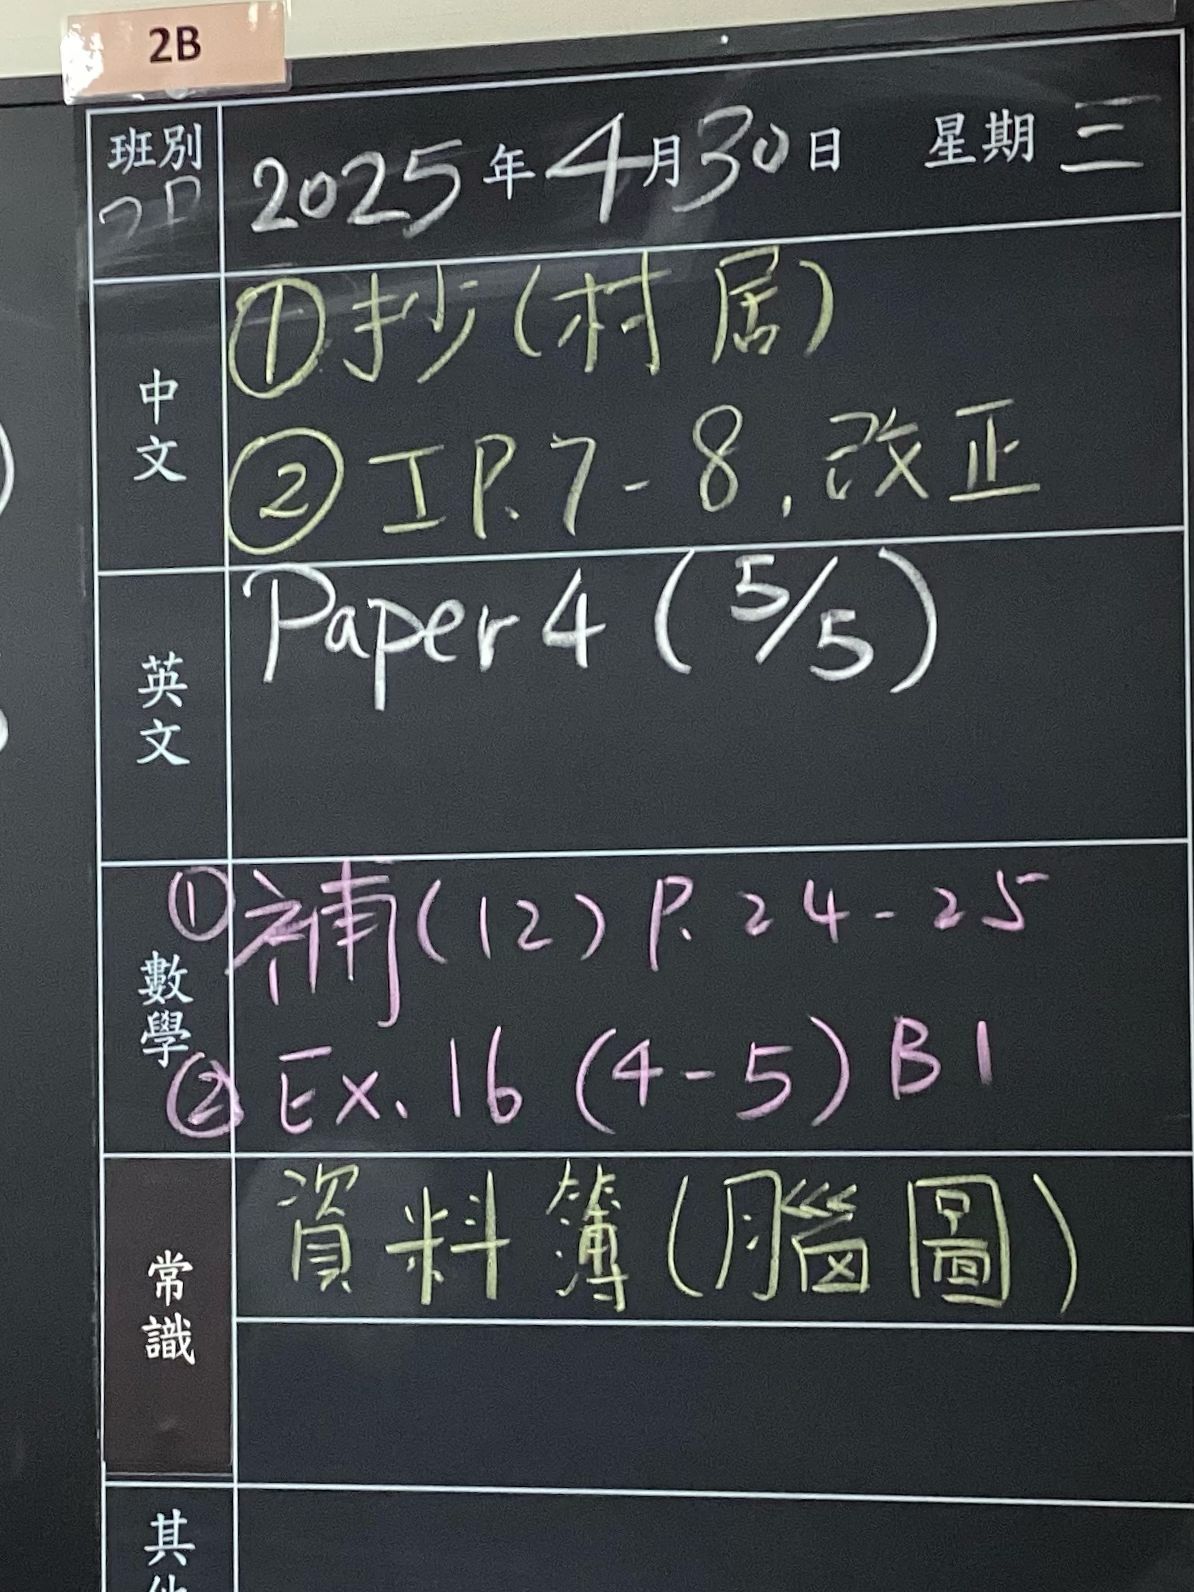 2B
班別 2025年4月30日 星期三
中文
①抄(村居)
②工P.7-8,改正
英文
Paper 4 (5/5)
數學
①補(12) P.24-25
②Ex.16 (4-5) B1
常識
資料簿(腦圖)
其他